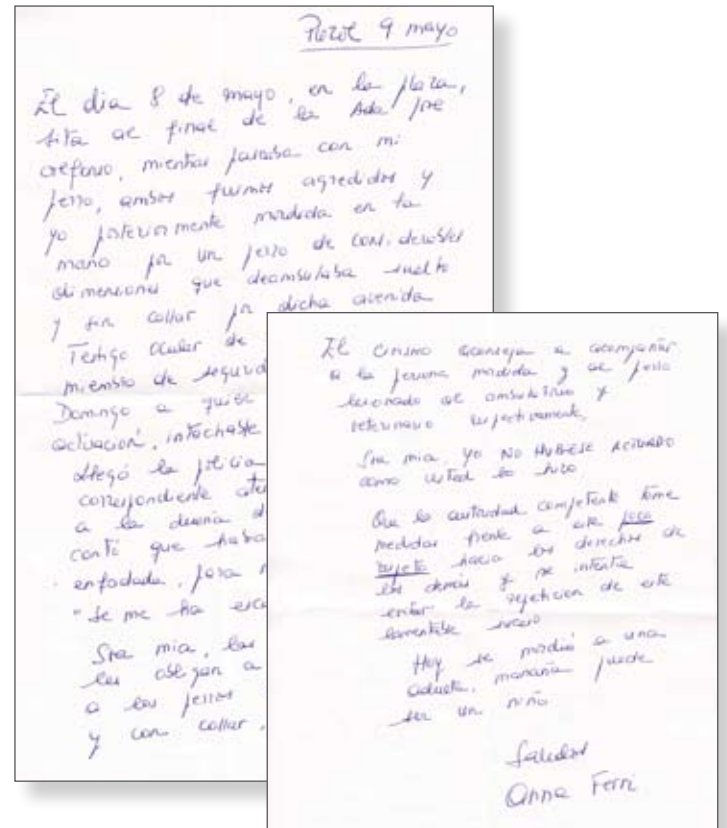 9 mayo
El dia 8 de mayo, en la plaza,
sita al final de la Avda por
crefonso, mientras paseaba con mi
perro, ambos fuimos agredidos y
yo posteriormente mordida en la
mano por un perro de considerables
dimensiones que deambulaba suelto
y sin collar por dicha avenida
Testigo ocular de
miembro de segurid
Domingo a quien
actuación, intachable
llegó la policia
correspondiente ate
a la dueña d
contó que habia
enfadada, para
"Se me ha esca
Sra mia, las
les obligan a
a los perros
y con collar.
El civismo aconseja a acompañar
a la persona mordida y al perro
lesionado al ambulatorio y
veterinario respectivamente.
Sra mia, yo NO HUBIESE ACTUADO
como usted lo hizo
Que la autoridad competente tome
medidas frente a este poco
respeto hacia los derechos de
los demás y se intente
evitar la repetición de este
lamentable suceso
Hoy se mordió a una
adulta, mañana puede
ser un niño
Saludos
Anna Ferri